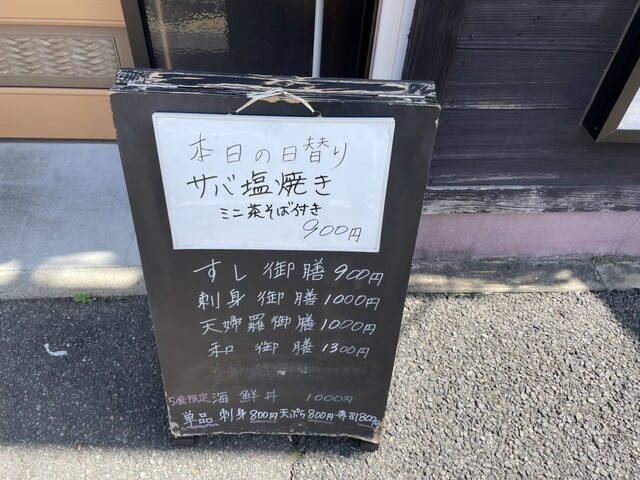 本日の日替り
サバ塩焼き
ミニ茶そば付き
900円
すし御膳900円
刺身御膳1000円
天婦羅御膳1000円
和御膳1300円
5食限定 海鮮丼 1000円
単品 刺身800円 天ぷら800円 寿司800円